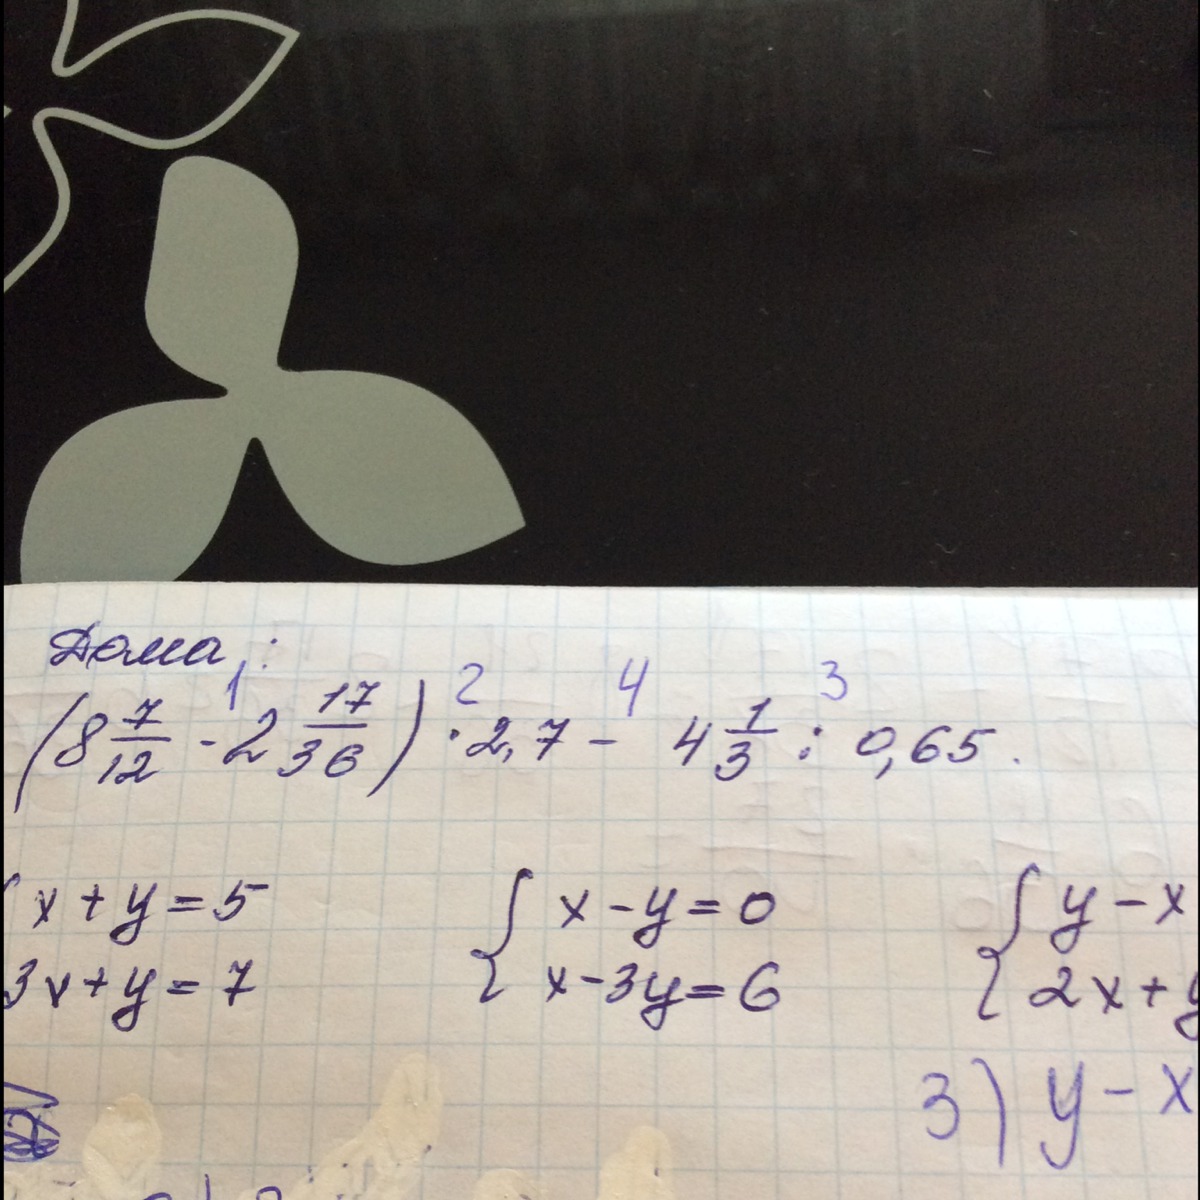 Дома:
1 2 4 3
(8 7/12 - 2 17/36) · 2,7 - 4 1/3 : 0,65.
{ x + y = 5 { x - y = 0 { y - x
3x + y = 7 x - 3y = 6 2x + y
3) y - x